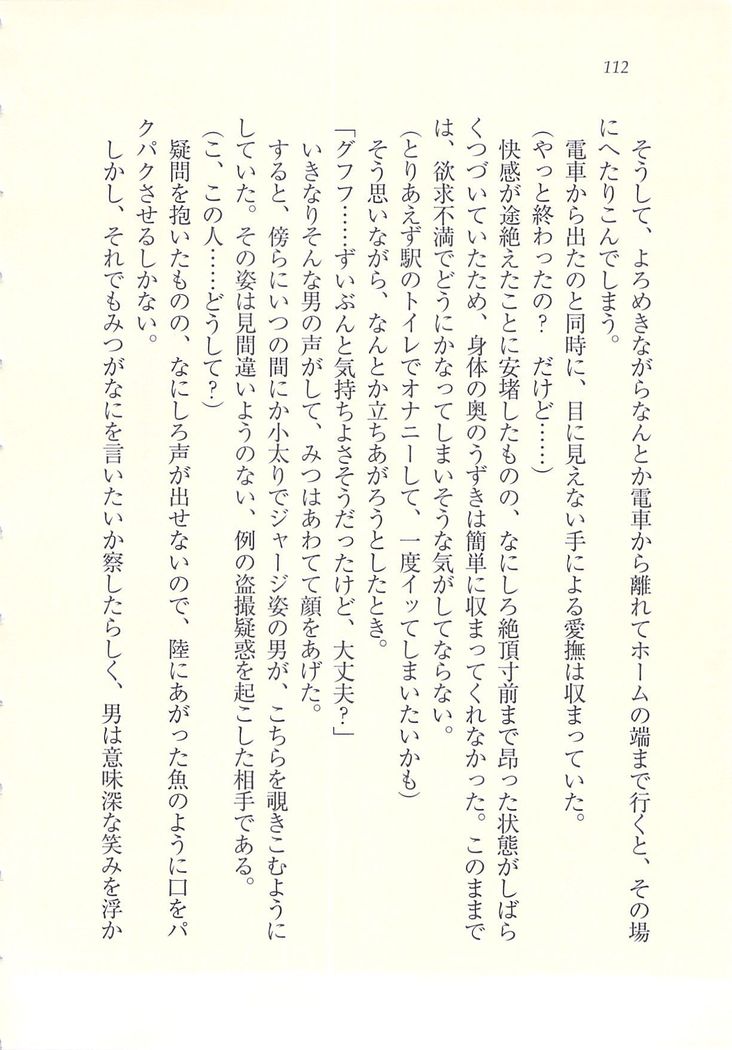 112
　そうして、よろめきながらなんとか電車から離れてホームの端まで行くと、その場
にへたりこんでしまう。
　電車から出たのと同時に、目に見えない手による愛撫は収まっていた。
（やっと終わったの？　だけど……）
　快感が途絶えたことに安堵したものの、なにしろ絶頂寸前まで昂った状態がしばら
くつづいていたため、身体の奥のうずきは簡単に収まってくれなかった。このままで
は、欲求不満でどうにかなってしまいそうな気がしてならない。
（とりあえず駅のトイレでオナニーして、一度イッてしまいたいかも）
　そう思いながら、なんとか立ちあがろうとしたとき。
「グフフ……ずいぶんと気持ちよさそうだったけど、大丈夫？」
　いきなりそんな男の声がして、みつはあわてて顔をあげた。
　すると、傍らにいつの間にか小太りでジャージ姿の男が、こちらを覗きこむように
していた。その姿は見間違いようのない、例の盗撮疑惑を起こした相手である。
（こ、この人……どうして？）
　疑問を抱いたものの、なにしろ声が出せないので、陸にあがった魚のように口をパ
クパクさせるしかない。
　しかし、それでもみつがなにを言いたいか察したらしく、男は意味深な笑みを浮か